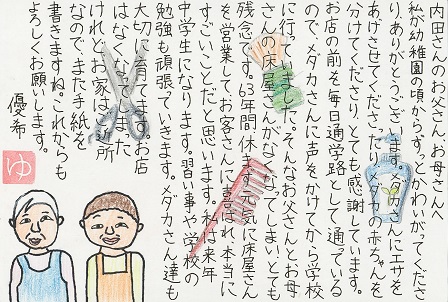 内田さんのお父さん、お母さんへ
私が幼稚園の頃からずっとかわいがってくださ
り、ありがとうございます。メダカさんにエサを
あげさせてくださったり、メダカの赤ちゃんを
分けてくださり、とても感謝しています。
お店の前を毎日通学路として通っている
ので、メダカさんに声をかけてから学校
に行ってました。そんなお父さんとお母
さんの床屋さんがなくなってしまい、とても
残念です。63年間、休まず元気に床屋さん
を営業してお客さんに喜ばれ、本当に
すごいことだと思います。私は来年
中学生になります。習い事や学校の
勉強も頑張っていきます。メダカさん達も
大切に育てます。お店
はなくなりました
けれど、お家は近所
なので、また手紙を
書きますね。これからも
よろしくお願いします。
優希
ゆ